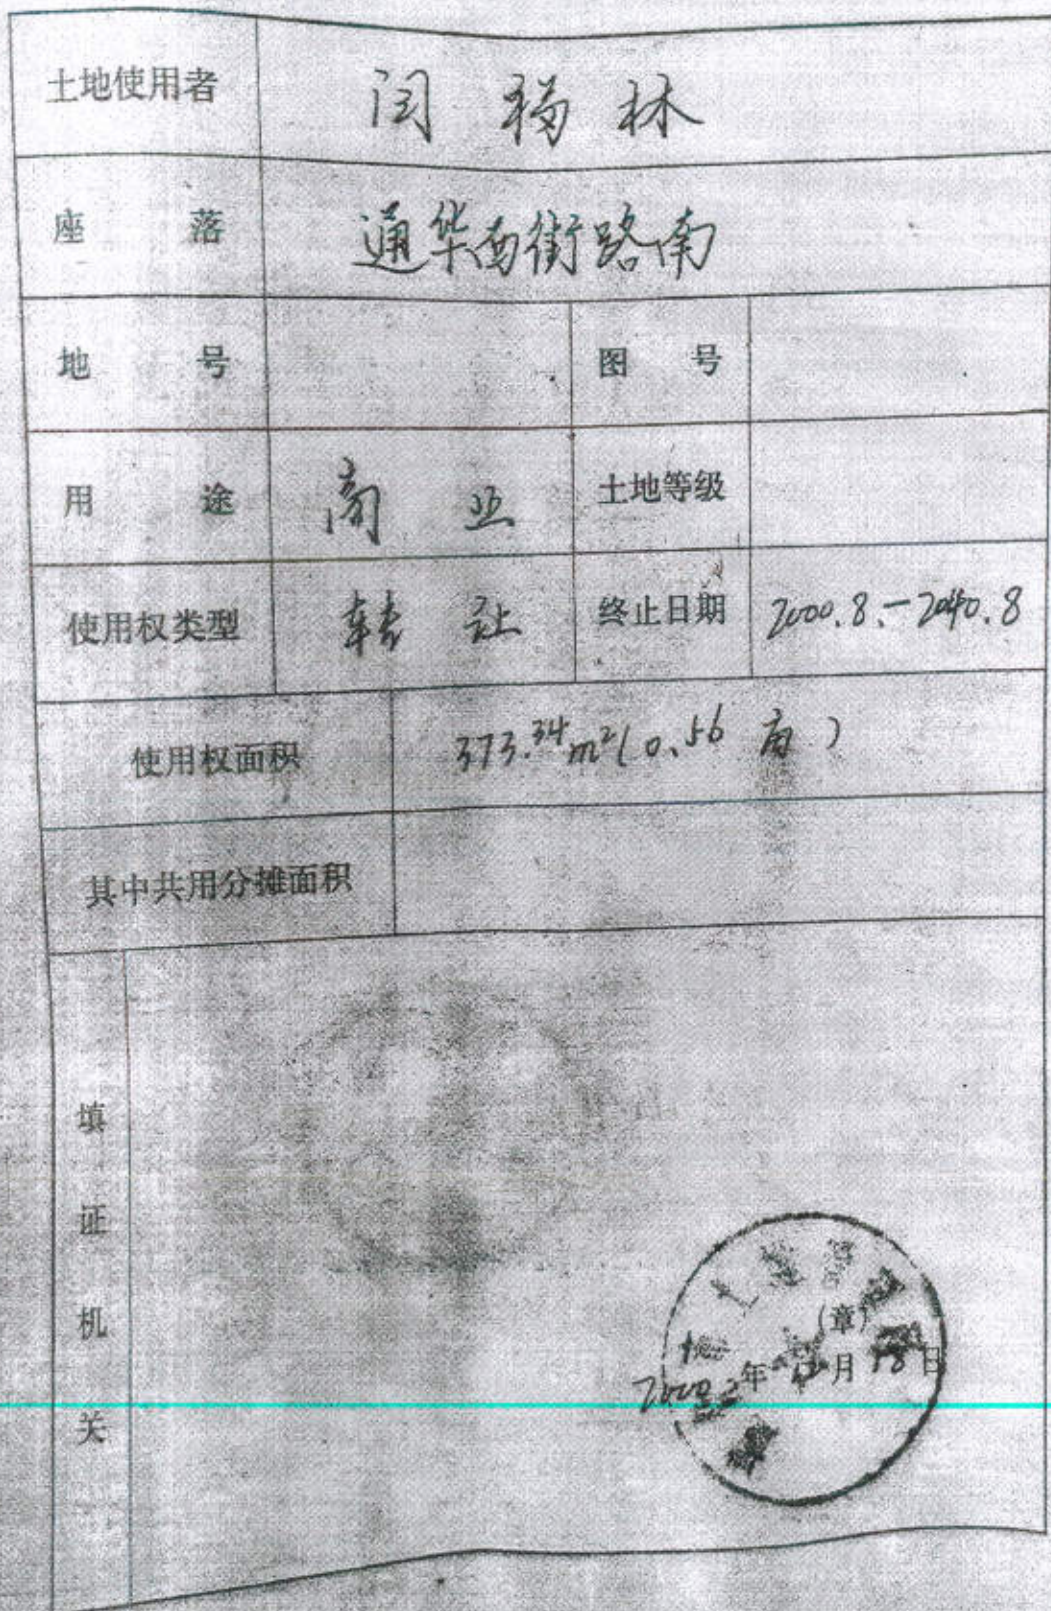 土地使用者 闫福林
座落 通华西街路南
地号 图号
用途 商业 土地等级
使用权类型 转让 终止日期 2000.8.-2040.8
使用权面积 373.34m²(0.56亩)
其中共用分摊面积
填证机关
(章)
2000年 月18日